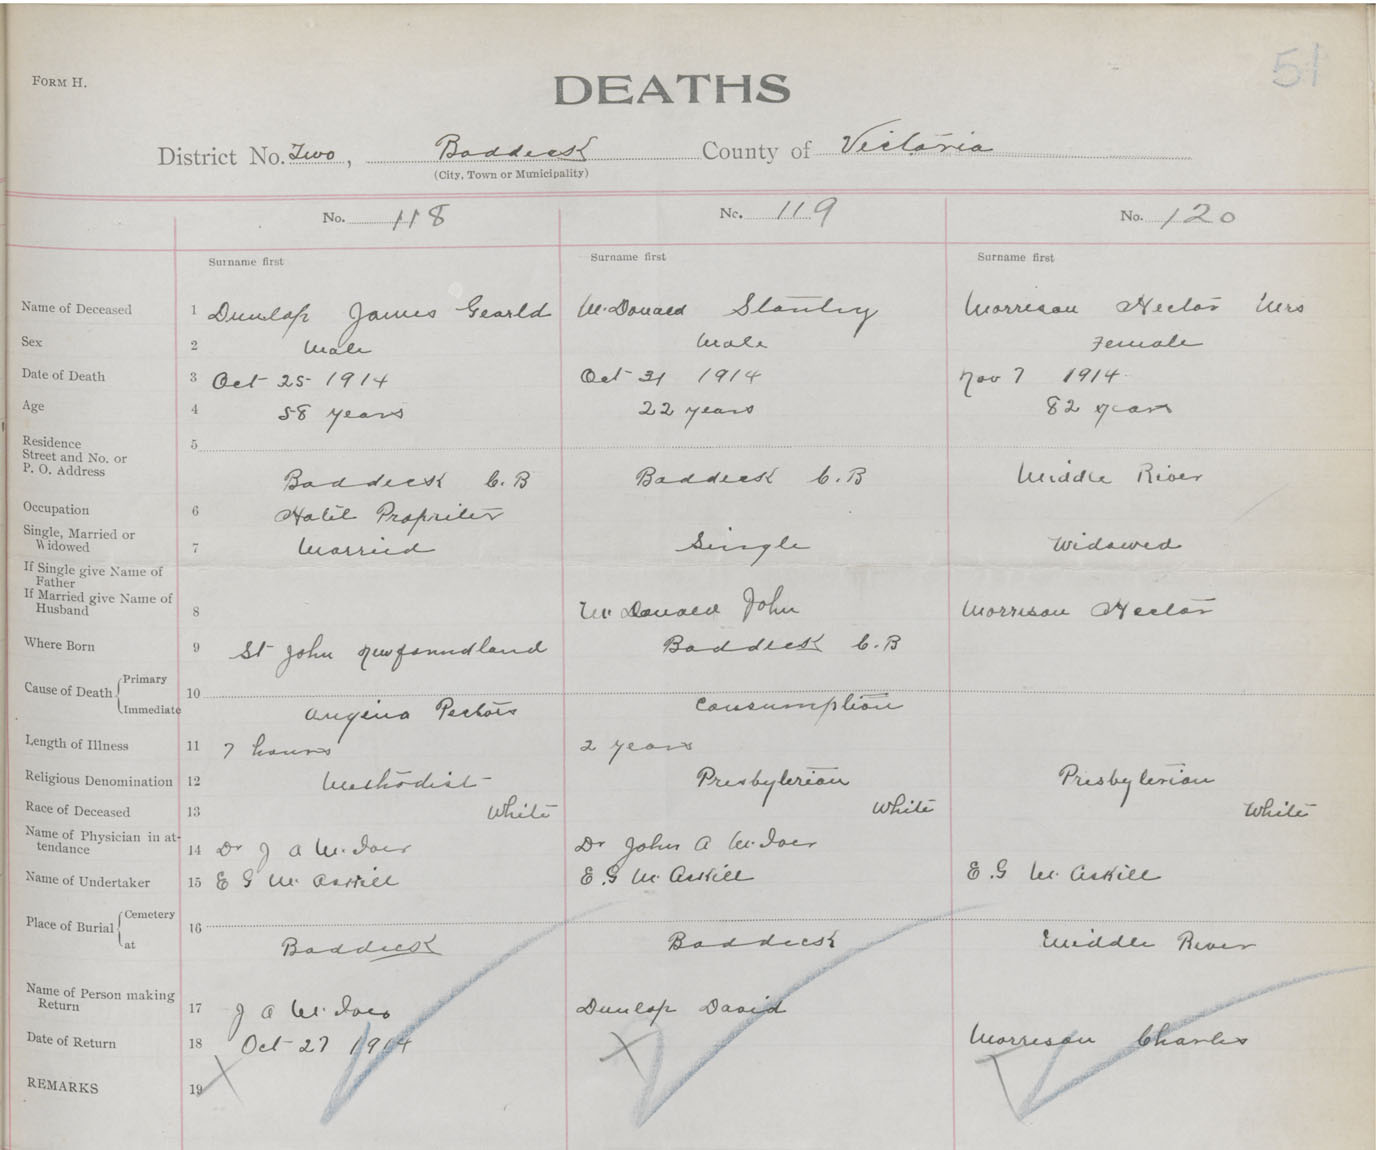 51
FORM H.
DEATHS
District No. Two, Baddeck County of Victoria
(City, Town or Municipality)
No. 118 No. 119 No. 120
Surname first Surname first Surname first
Name of Deceased 1 Dunlap James Gearld McDonald Stanley Morrison Hector Mrs
Sex 2 Male Male Female
Date of Death 3 Oct 25 1914 Oct 31 1914 Nov 7 1914
Age 4 58 years 22 years 82 years
Residence 5
Street and No. or
P. O. Address Baddeck C. B Baddeck C. B Middle River
Occupation 6 Hotel Propriter
Single, Married or
Widowed 7 Married Single Widowed
If Single give Name of
Father
If Married give Name of
Husband 8 McDonald John Morrison Hector
Where Born 9 St John Newfoundland Baddeck C. B
Cause of Death Primary 10
Immediate Angina Pectoris Consumption
Length of Illness 11 7 hours 2 years
Religious Denomination 12 Methodist Presbyterian Presbyterian
Race of Deceased 13 White White White
Name of Physician in at-
tendance 14 Dr J A Dr John A
Name of Undertaker 15 E G McAskill E. G McAskill E. G McAskill
Place of Burial Cemetery 16
at Baddeck Baddeck Middle River
Name of Person making
Return 17 J A Dunlap David
Date of Return 18 Oct 27 1914 Morrison Charles
REMARKS 19